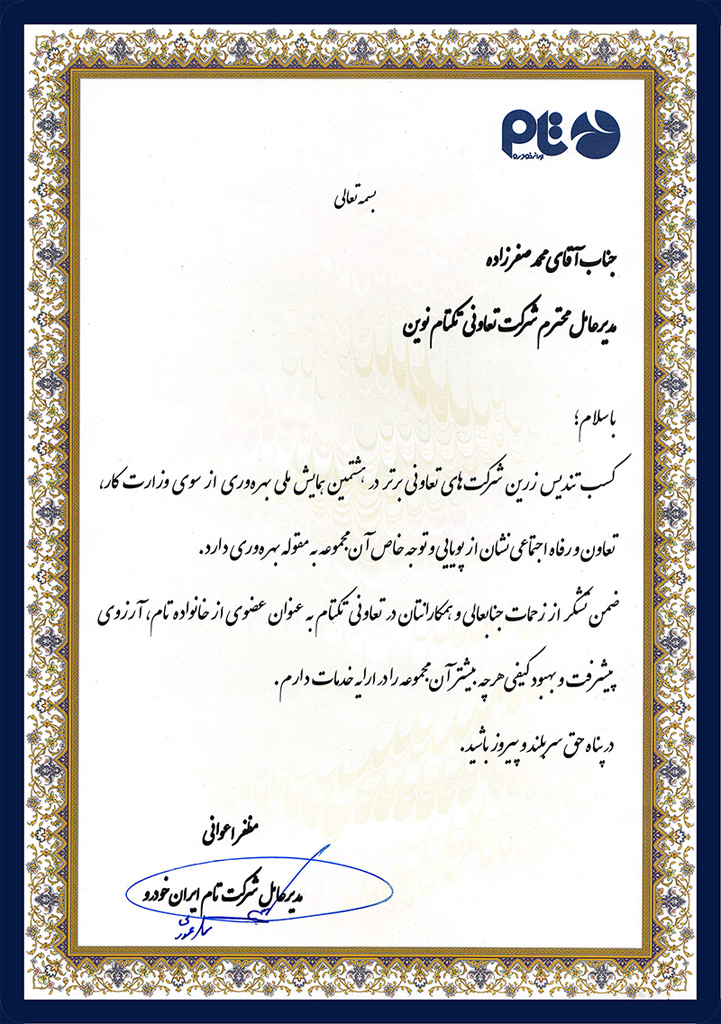 تام
ایران خودرو
بسمه تعالی
جناب آقای محمد صفرزاده
مدیرعامل محترم شرکت تعاونی تکتام نوین
با سلام؛
کسب تندیس زرین شرکت های تعاونی برتر در هشتمین همایش ملی بهره‌وری از سوی وزارت کار،
تعاون و رفاه اجتماعی نشان از پویایی و توجه خاص آن مجموعه به مقوله بهره‌وری دارد.
ضمن تشکر از زحمات جنابعالی و همکارانتان در تعاونی تکتام به عنوان عضوی از خانواده تام، آرزوی
پیشرفت و بهبود کیفی هرچه بیشتر آن مجموعه را در ارایه خدمات دارم.
در پناه حق سربلند و پیروز باشید.
مظفر اعوانی
مدیرعامل شرکت تام ایران خودرو